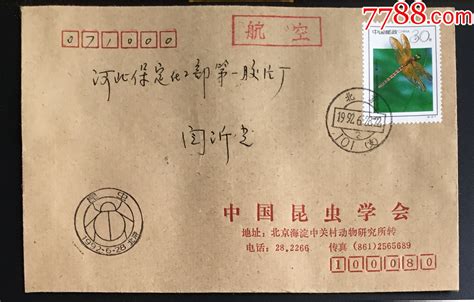 7788.com
071000
航空
中国邮政
30分
河北保定化工部第一胶片厂
北京
1992.6.28.12
101(支)
闫沂光
昆虫
1992-6-28 北京
中国昆虫学会
地址：北京海淀中关村动物研究所转
电话：28.2266 传真 (861)2565689
100080